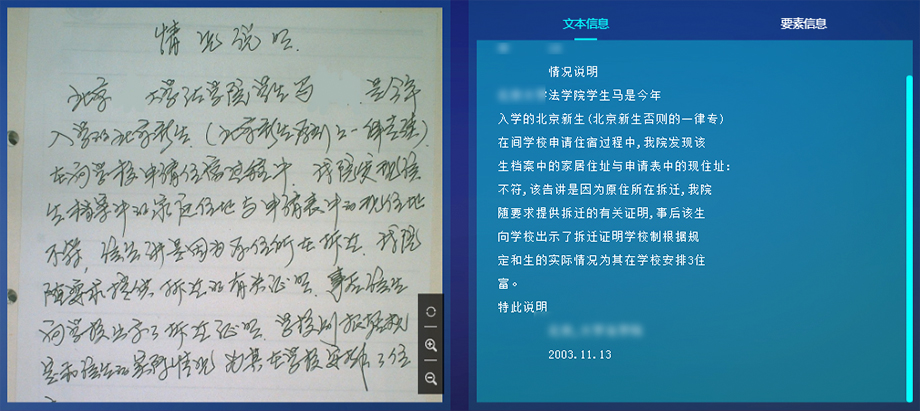 情况说明
北京 大学法学院学生马 是今年
入学的北京新生.(北京新生原则上一律走读)
在向学校申请住宿过程中,我院发现该
生档案中的家庭住址与申请表中的现住地
不符,该生讲是因为原住所在拆迁.我院
随要求提供拆迁的有关证明.事后该生
向学校出示了拆迁证明.学校则根据规
定和该生的实际情况为其在学校安排了住
文本信息
要素信息
情况说明
法学院学生马是今年
入学的北京新生(北京新生否则的一律专)
在间学校申请住宿过程中,我院发现该
生档案中的家居住址与申请表中的现住址:
不符,该告讲是因为原住所在拆迁,我院
随要求提供拆迁的有关证明,事后该生
向学校出示了拆迁证明学校制根据规
定和生的实际情况为其在学校安排3住
富。
特此说明
2003.11.13